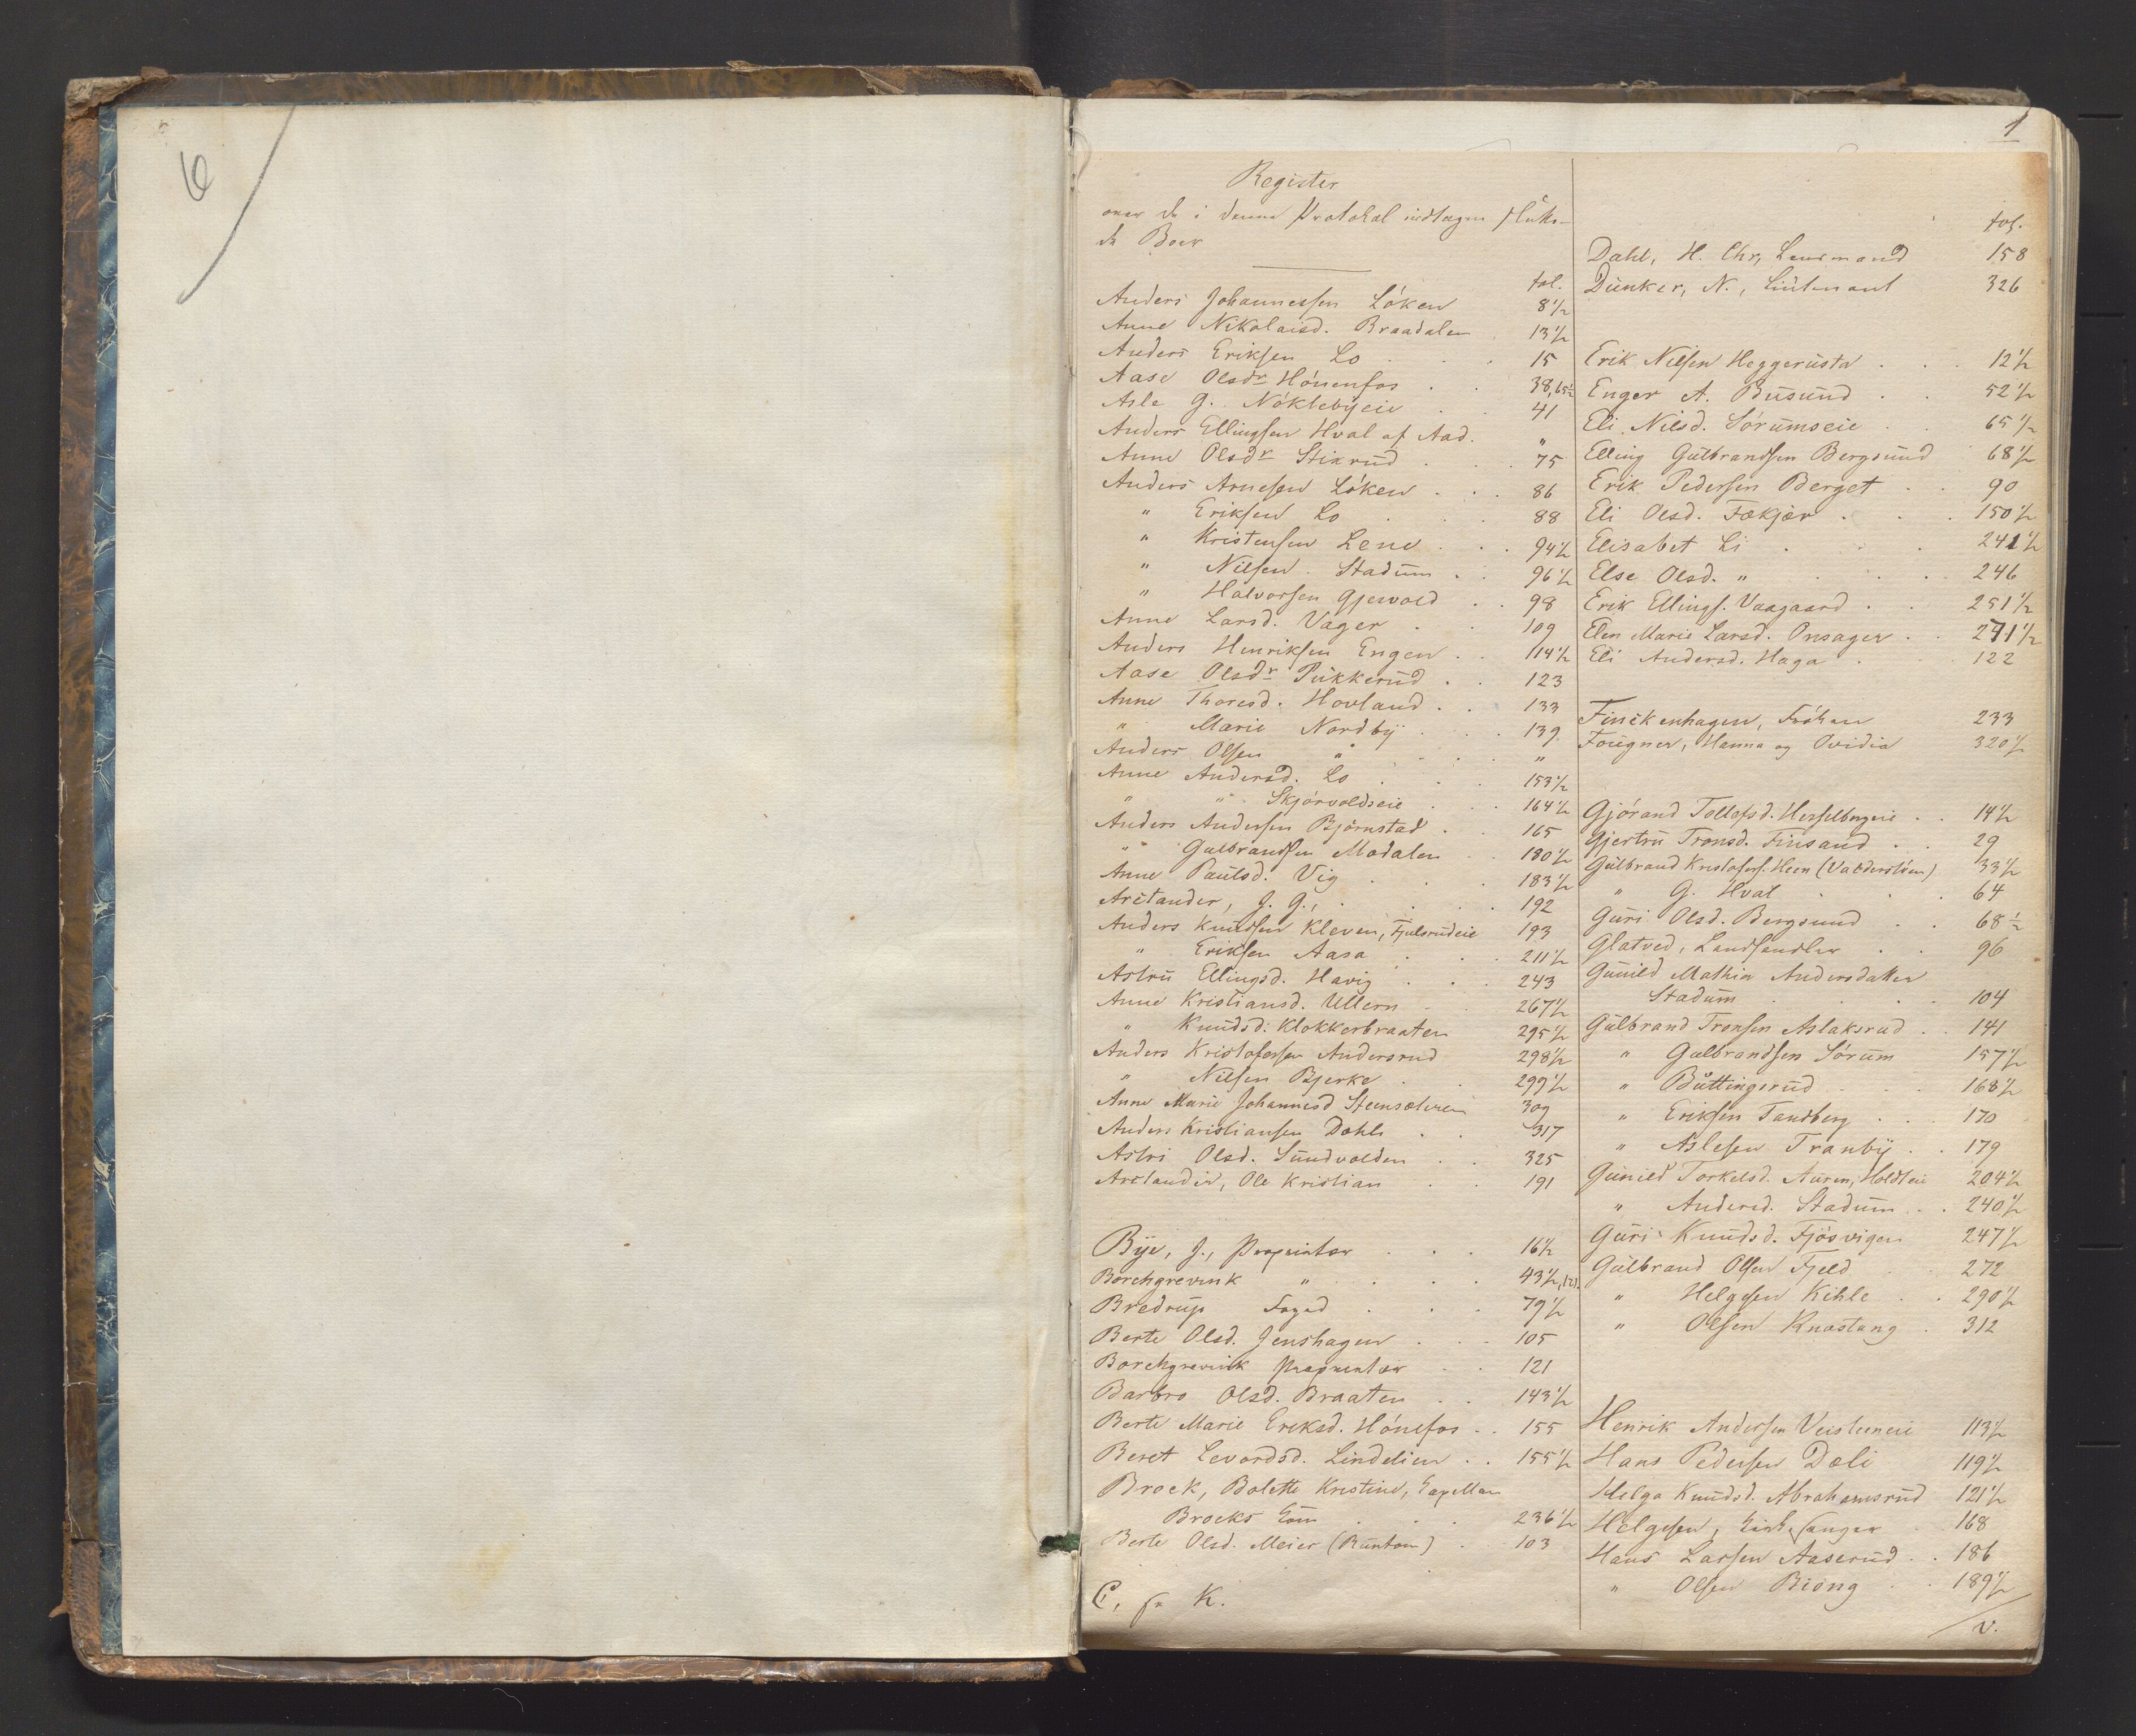 6
1
Register
over de i denne Protokol indtagne slutte-
de Boer
fol.
Anders Johannessen Löken 8½
Anne Nikolaisd. Braadalen 13½
Anders Eriksen Lo 15
Aase Olsdr Hönenfos 38, 65½
Asle G. Nöklebyeie 41
Anders Ellingsen Hval af Aad. "
Anne Olsdr Stixrud 75
Anders Arnesen Löken 86
" Eriksen Lo 88
" Kristensen Lene 94½
" Nilsen Stadum 96½
" Halvorsen Gjervold 98
Anne Larsd. Vager 109
Anders Henriksen Engen 114½
Aase Olsdr Pukkerud 123
Anne Thoresd. Hovland 133
" Marie Nordby 139
Anders Olsen " "
Anne Andersd. Lo 153½
" " Skjörvoldseie 164½
Anders Andersen Björnstad 165
" Gulbrandsen Modalen 180½
Anne Paulsd. Vig 183½
Arctander, J. J., 192
Anders Knudsen Kleven, Fjulsrudeie 193
" Eriksen Aasa 211½
Astru Ellingsd. Havig 243
Anne Kristiansd. Ullern 267½
" Knudsd. Klokkerbraaten 295½
Anders Kristofersen Andersrud 298½
" Nilsen Bjerke 299½
Anne Marie Johannesd Steensæteren 309
Anders Kristiansen Dahle 317
Astri Olsd. Sundvolden 325
Arctander, Ole Kristian 191
Bye, J., Proprietær 16½
Borchgrevink " 43½, 121.
Bredrup Foged 79½
Berte Olsd. Jenshagen 105
Borchgrevink Proprietær 121
Barbro Olsd. Braaten 143½
Berte Marie Eriksd. Hönefos 155
Beret Levordsd. Lindelien 155½
Brock, Bolette Kristine, Capellan
Brocks Enke 236½
Berte Olsd. Meier (Runton) 103
C, se K.
fol.
Dahl, H. Chr., Lensmand 158
Dunker, N., Liutenant 326
Erik Nilsen Heggerusta 12½
Enger A. Busund 52½
Eli Nilsd. Sörumseie 65½
Elling Gulbrandsen Bergsund 68½
Erik Pedersen Berget 90
Eli Olsd. Fækjær 150½
Elisabet Li 241½
Else Olsd. " 246
Erik Ellings. Vaagaard 251½
Elen Marie Larsd. Onsager 271½
Eli Andersd. Haga 122
Finckenhagen, Fröken 233
Fougner, Hanna og Ovidia 320½
Gjörand Tollefsd. Hesselbergeie 14½
Gjertru Tronsd. Finsand 29
Gulbrand Kristofers. Heen (Valderslöen) 33½
" G. Hval 64
Guri Olsd. Bergsund 68½
Glatved, Landhandler 96
Gunild Mathia Andersdatter
Stadum 104
Gulbrand Tronsen Aslaksrud 141
" Gulbrandsen Sörum 157½
" Buttingsrud 168½
" Eriksen Tandberg 170
" Aslesen Tranby 179
Gunild Torkelsd. Auren, Holdteie 204½
" Andersd. Stadum 240½
Guri Knudsd. Fjösvigen 247½
Gulbrand Olsen Fjeld 272
" Helgesen Kihle 290½
" Olsen Knæstang 312
Henrik Andersen Vesterneie 113½
Hans Pedersen Dæli 119½
Helga Knudsd. Abrahamsrud 121½
Helgesen, Kirkesanger 168
Hans Larsen Aaserud 186
" Olsen Biöng 189½
v.